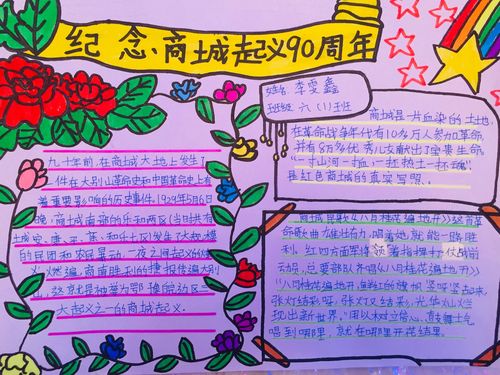 纪念·商城起义90周年
姓名 李雯鑫
班级 六(1)班
九十年前,在商城大地上发生了
一件在大别山革命史和中国革命史上有
着重要影响的历史事件。1929年5月6日
晚,商城南部的
城
的民团和农民暴动,一夜之间起义的
火燃遍,商南胜利的捷报传遍大别
山,这就是被誉为鄂豫皖边区三
大起义之一的商城起义。
商城是一片血染的土地,
在革命战争年代有10多万人参加革命,
并有8万多优秀儿女献出了宝贵生命。
“一寸山河一血,一抔热土一抔魂”
是红色商城的真实写照。
商城民歌《八月桂花遍地开》这首革
命歌曲,唱着她就能一路胜
利。红四方面军将领着指挥打仗战前
动员,总要部队齐唱《八月桂花遍地开》
“八月桂花遍地开,鲜红的旗帜竖呀竖起来,
张灯结彩呀,张灯又结彩,光华灿烂
现出新世界。”用以树立信心、鼓舞士气
唱到哪里,就在哪里开花结果。